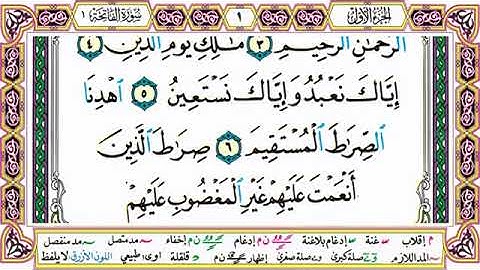 الجزء الأول ١ سورة الفاتحة ١
الرحمٰن الرحيم ٣ مٰلك يوم الدين ٤
إِيَّاكَ نَعْبُدُ وَإِيَّاكَ نَسْتَعِينُ ٥ ٱهْدِنَا
ٱلصِّرَٰطَ ٱلْمُسْتَقِيمَ ٦ صِرَٰطَ ٱلَّذِينَ
أَنْعَمْتَ عَلَيْهِمْ غَيْرِ ٱلْمَغْضُوبِ عَلَيْهِمْ
م إقلاب س غنة س إدغام بلاغنة ن م إدغام ن م إخفاء مد متصل مد منفصل
المد اللازم صلة كبرى صلة صغرى إظهار ن م قلقلة ا و ى: طبيعي اللون الأزرق لا يلفظ